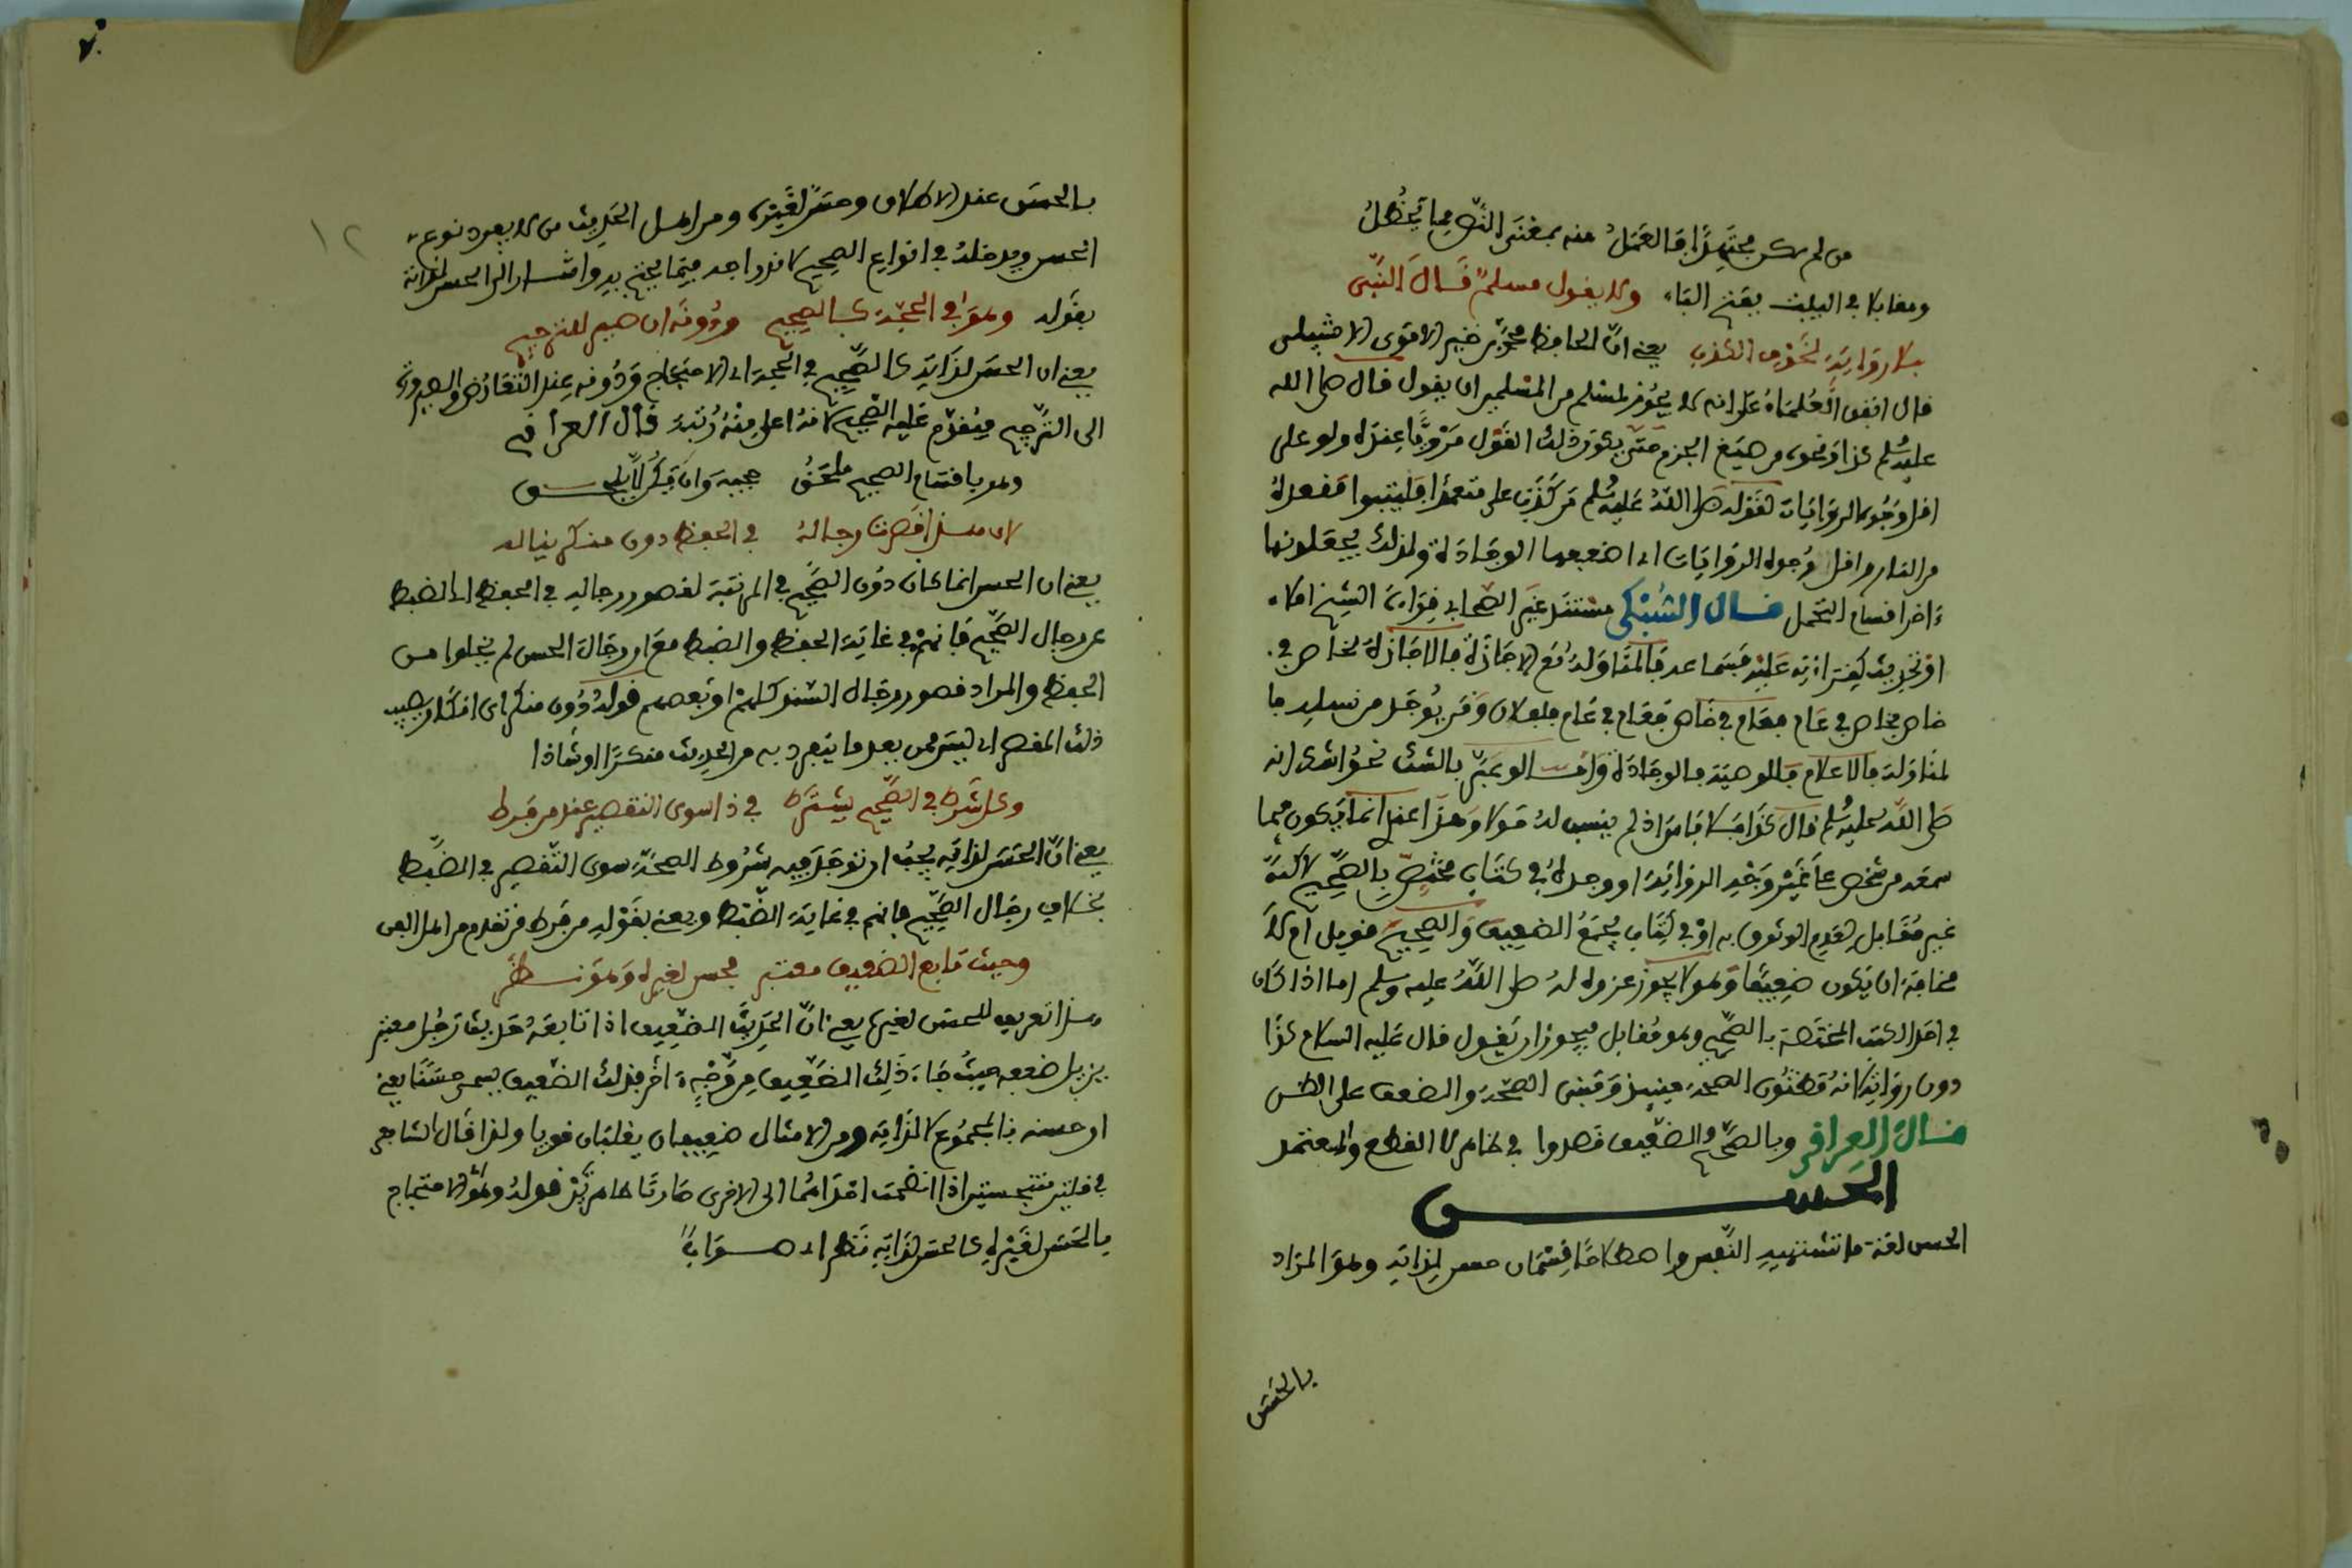 من لم يكن مجتهدا فالعمل منه بمعنى النص مما يحظل
ومقابلا في البيت بفتح الباء ولا يقول مسلم قال النبي
بلا رواية لخوف الكذب يعني ان الحافظ محمد بن خير الاموي الاشبيلي
قال اتفق العلماء على انه لا يجوز لمسلم من المسلمين ان يقول قال صلى الله
عليه وسلم كذا ونحوه من صيغ الجزم حتى يكون ذلك القول مرويا عنده ولو على
اقل وجوه الروايات لقوله صلى الله عليه وسلم من كذب علي متعمدا فليتبوأ مقعده
من النار واقل وجوه الروايات اي اضعفها الوجادة ولذلك يجعلونها
ءاخر اقسام التحمل قال السبكي مستند غير الصحابي قراءة الشيخ املاء
او تحديث كقراءته عليه فسماعه فالمناولة مع الاجازة فالاجازة لخاص في
خاص فخاص في عام فعام في خاص فعام في عام فلفلان ومن يوجد من نسله فا
لمناولة فالاعلام فالوصية فالوجادة
صلى الله عليه وسلم قال كذا فلا باس اذ لم ينسب له قولا وهذا عندي انما يكون فيما
سمعه من شخص على غير وجه الرواية او وجده في كتاب مختص بالصحيح لاكنه
غير مقابل لعدم الوثوق به او في كتاب يجمع الضعيف والصحيح
مخافة ان يكون ضعيفا وهو لا يجوز عزوه له صلى الله عليه وسلم اما اذا كان
في احد الكتب المختصة بالصحيح وهو مقابل فيجوز ان يقول قال عليه السلام كذا
دون رواية لانه مظنون الصحة حينئذ ومبنى الصحة والضعف على الظن
قال العراقي وبالصحيح والضعيف قصدوا في ظاهر لا القطع والمعتمد
الحسن
الحسن لغة ما تشتهيه النفس واصطلاحا قسمان حسن لذاته وهو المراد
بالحسن
بالحسن عند الاطلاق وحسن لغيره ومن اهل الحديث من لا يفرد نوع
الحسن ويدخله في انواع الصحيح لاندراجه فيما يحتج به واشار الى الحسن لذاته
بقوله وهو في الحجة كالصحيح ودونه ان صير للترجيح
يعني ان الحسن لذاته كالصحيح في الحجة اي الاحتجاج ودونه عند التعارض والصيرورة
الى الترجيح فيقدم عليه الصحيح لانه اعلى منه رتبة قال العراقي
وهو باقسام الصحيح ملحق حجية وان يكن لا يلحق
لان هذا قصرت رجاله في الحفظ دون منكر يناله
يعني ان الحسن انما كان دون الصحيح في المرتبة لقصور رجاله في الحفظ اي الضبط
عن رجال الصحيح فانهم في غاية الحفظ والضبط مع ان رجال الحسن لم يخلوا من
الحفظ والمراد قصور رجال السند كلهم او بعضهم قوله دون منكر اي انكار يصيب
ذلك المقصر اي ليس ممن يعد ما ينفرد به من الحديث منكرا او شاذا
وكل شرط في الصحيح يشترط في ذا سوى التقصير عند من فرط
يعني ان الحسن لذاته يجب ان توجد فيه شروط الصحة سوى التقصير في الضبط
بخلاف رجال الصحيح فانهم في غاية الضبط ويعني بقوله من فرط من تقدم من اهل الفن
وحيث تابع الضعيف معتبر فحسن لغيره وهو نظر
هذا تعريف للحسن لغيره يعني ان الحديث الضعيف اذا تابعه حديث رجل معتبر
يزيل ضعفه حيث جاء ذلك الضعيف من وجه ءاخر فذلك الضعيف يسمى حسنا يعني
ان حسنه بالمجموع لا لذاته ومن الامثال ضعيفان يغلبان قويا ولذا قال الشافعي
في قلتين متنجستين اذا انضمت احداهما الى الاخرى صارتا طاهرتين قوله وهو الاحتجاج
بالحسن لغيره كالحسن لذاته نظر اي صواب